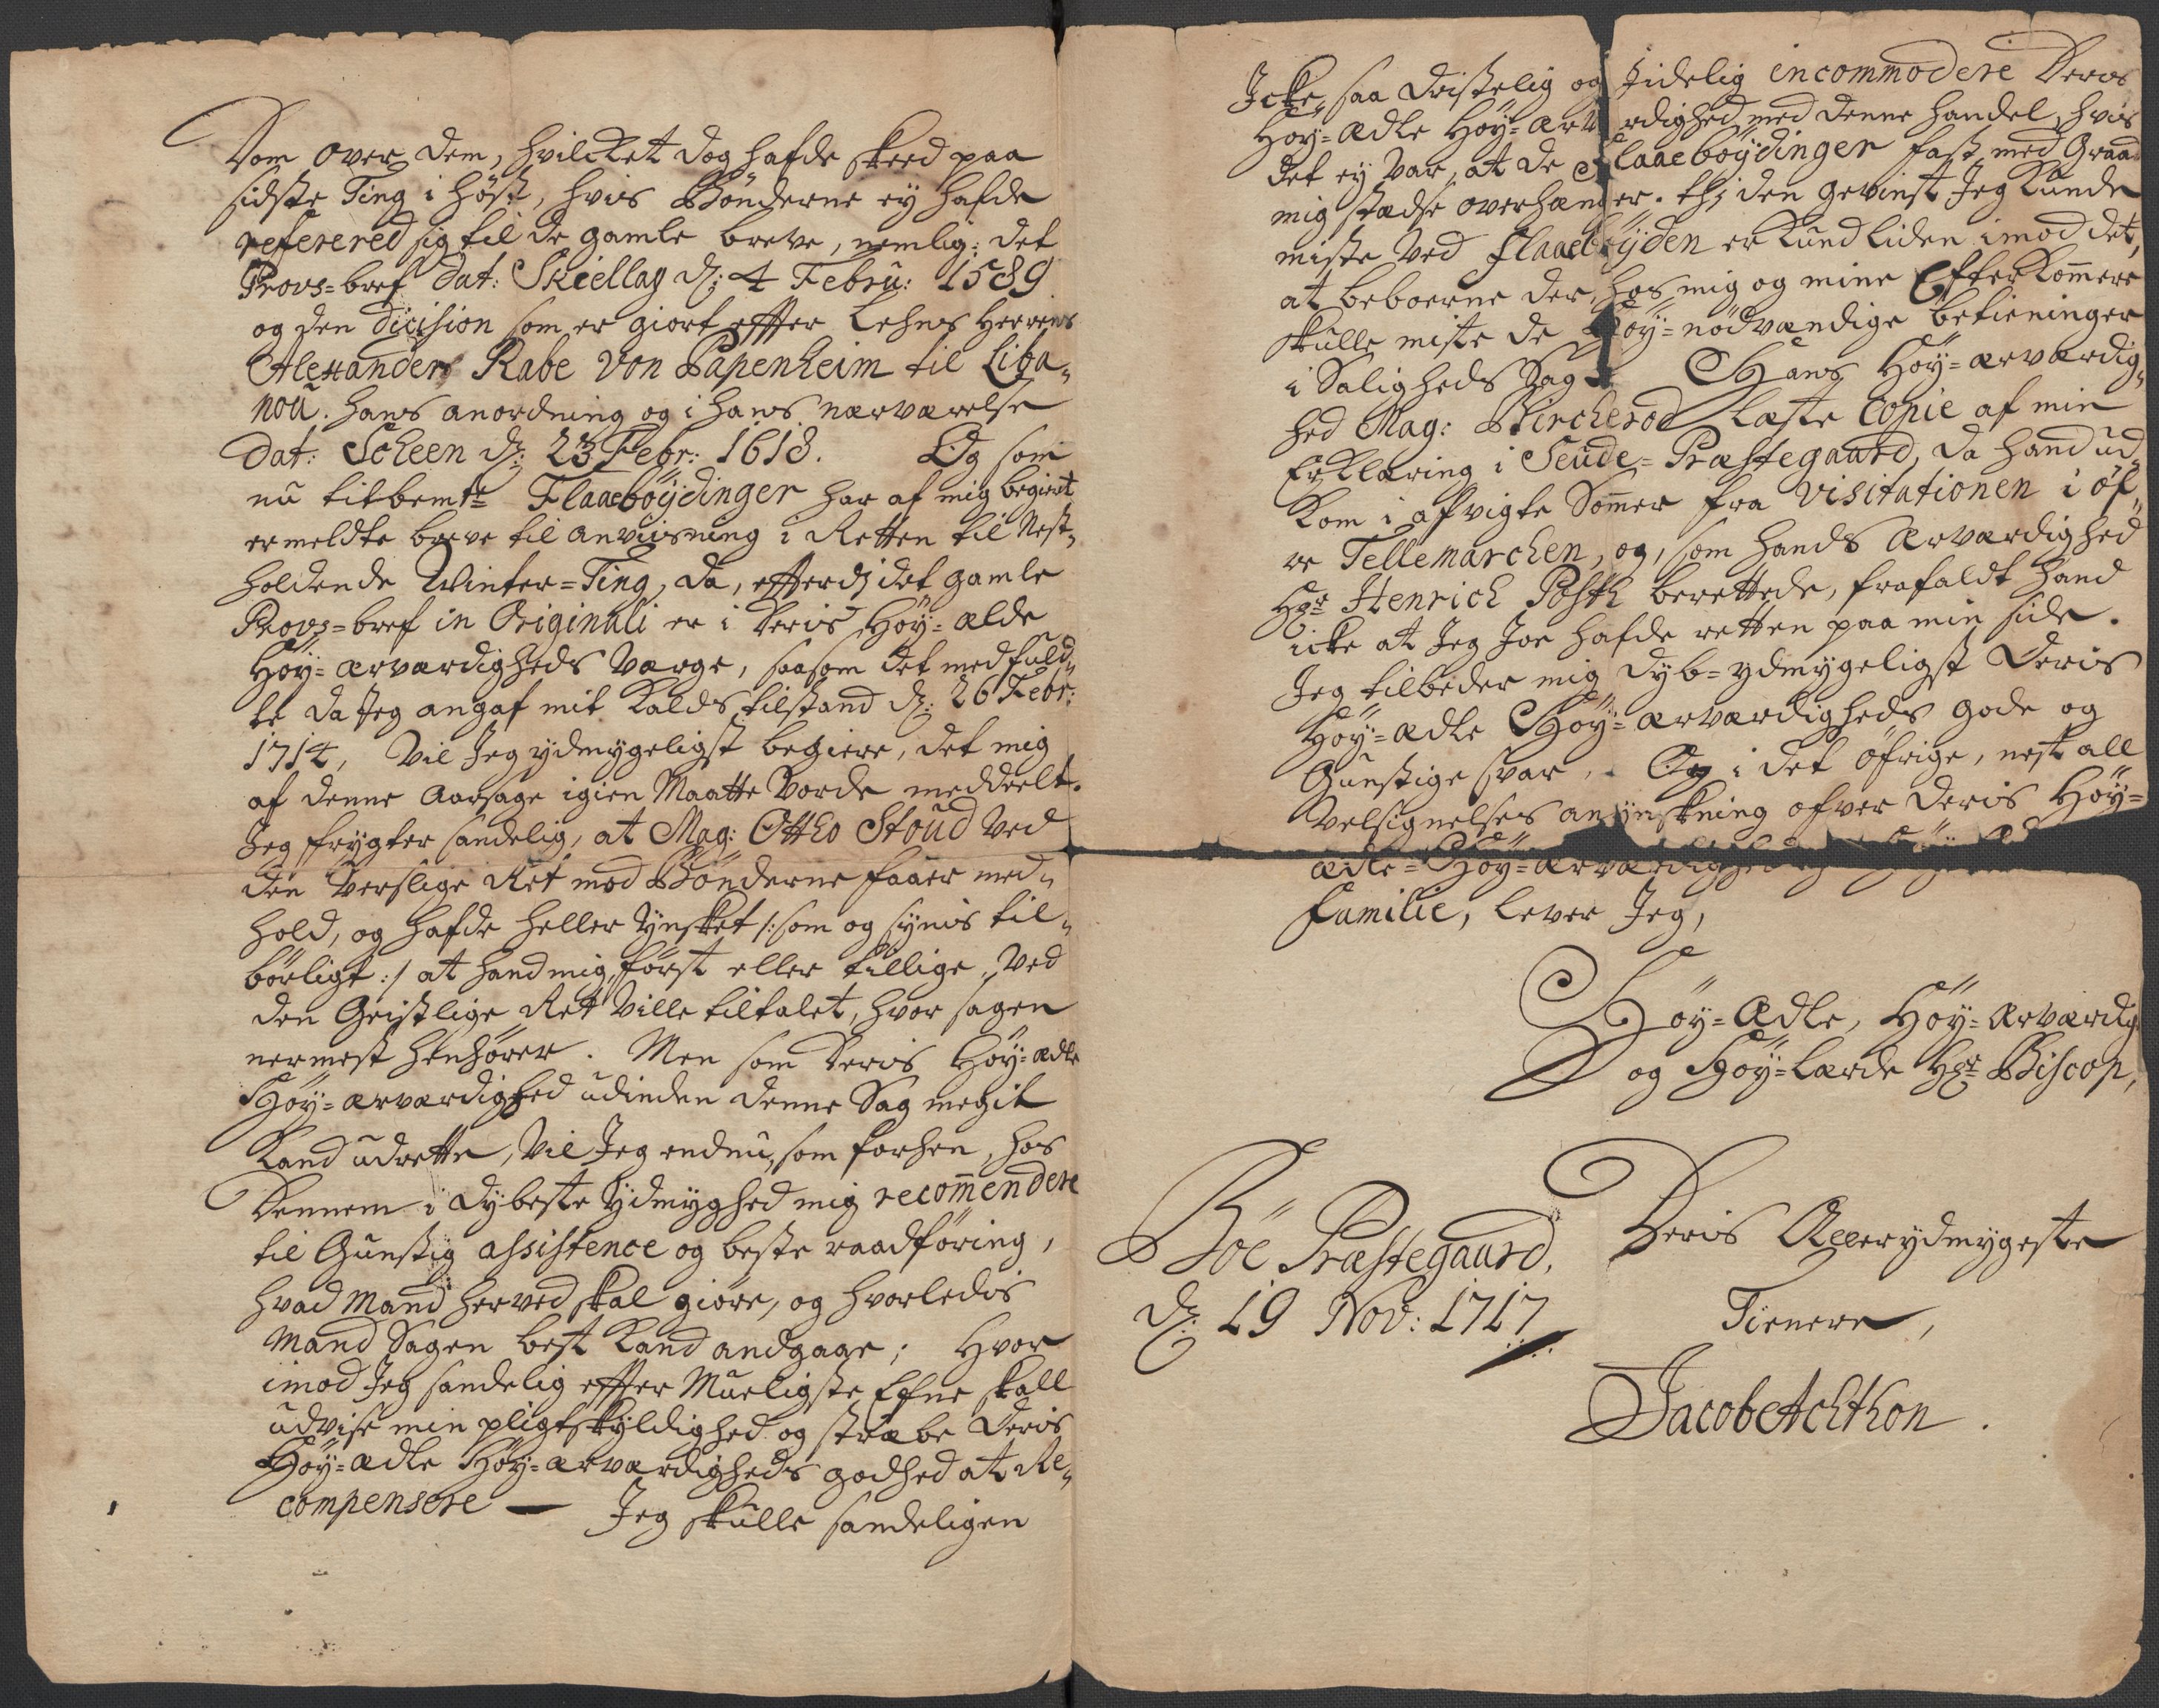 Dom over dem, hvilcket dog hafde skeed paa
sidste Ting i höst, hvis Bönderne ey hafde
referered sig til de gamle breve, nemlig: det
Provs=bref dat: Skiellay d: 4 Febru: 1589
og den dicision som er giort effter Lehns Herrens
Alexanders Rabe von Papenheim til Liba-
nou. hans anordning og i hans nærværelse
dat: Scheen d: 23 Febr: 1618. Og som
nu titbemte Flaaeböydinger har af mig begiert
ermeldte breve til anviisning i Retten til Nest-
holdende Winter=Ting, da, efferdj det gamle
Provs=bref in Originali er i Deris Höy=ælde
Höy=ærværdigheds værge, saasom det medfuld-
te da Jeg angaf mit Kalds tilstand d: 26 Febr:
1714, vil Jeg ydmygeligst begiere, det mig
af denne Aarsage igien Maatte vorde meddeelt.
Jeg frygter sandelig, at Mag: Ottho Stoud ved
den verslige Ret mod Bönderne faaer med-
hold, og hafde heller ynsket /: som og synis til-
börligt :/ at hand mig först eller tillige ved
den Geistlige Ret ville tiltalet, hvor sagen
nermest henhörer. Men som Deris Höy=ædle
Höy=ærværdighed udinden denne Sag megit
Kand udrette, vil Jeg endnu, som forhen, hos
Dennem i dybeste ydmyghed mig recom̄endere
til Gunstig assistence og beste raadföring,
hvad Mand herved skal giöre, og hvorledis
Mand Sagen best Kand andgage; Hvor
imod Jeg sandelig effter Mueligste Efne skall
udvise min pligtskyldighed og stræbe Deris
Höy=ædle Höy=ærværdigheds godhed at Re-
compensere — Jeg skulle sandeligen
Icke saa dristelig og jidelig incommodere Deris
Höy=ædle Höy=ærv rdighed med denne handel, hvis
det ey var, at de Flaaeböydinger fast med Graad
mig stædse overhænger. thj den gevinst Jeg Kunde
miste ved Flaaeböyden er Kund liden imod det,
at beboerne der, hos mig og mine Efterkom̄ere
skulle miste de Höy=nödvændige betieninger
i Saligheds Sag. Hans Höy=ærværdig-
hed Mag: Bircherod læste Copie af min
Erklæring i Seude=Præstegaard, da hand ud-
kom i afvigte Som̄er fra Visitationen i öf-
re Tellemarchen, og, som hands Ærværdighed
Hr Henrich Posth berettede, frafaldt hand
icke at Jeg Joe hafde retten paa min side.
Jeg tilbeder mig dyb=ydmygeligst Deris
Höy=ædle Höy=ærværdigheds gode og
Gunstige svar. Og i det öfrige, nest all
velsignelses anynskning ofver Deris Höy=
ædle=Höy=ærværdighed
Familie, lever Jeg,
Höy=Ædle, Höy=Ærværdig
og Höy=Lærde Hr Biscop,
Böe Præstegaard,
d: 19 Nov: 1717
Deris Allerydmygeste
Tienere,
Jacob Achthon.